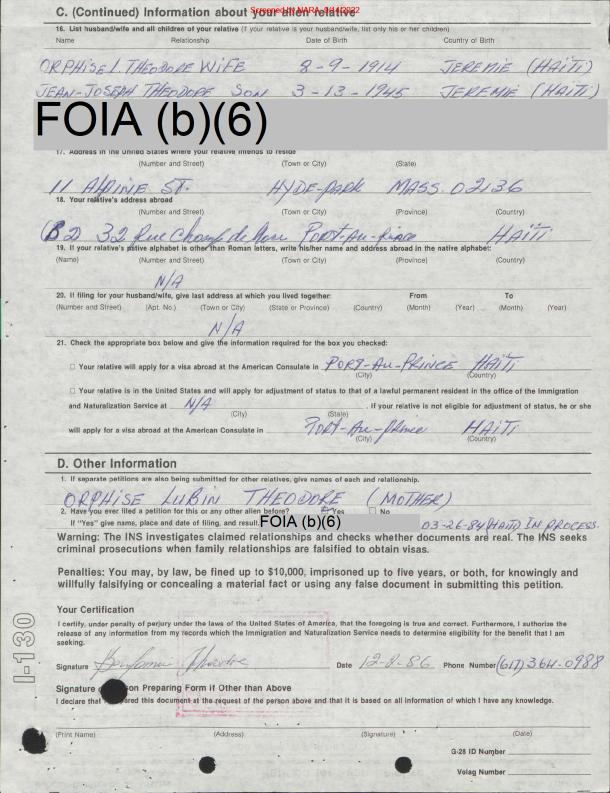 C. (Continued) Information about your alien relative
16. List husband/wife and all children of your relative (if your relative is your husband/wife, list only his or her children)
Name Relationship Date of Birth Country of Birth
ORPHISE L. THEODORE WIFE 8-9-1914 JEREMIE (HAITI)
JEAN-JOSEPH THEODORE SON 3-13-1945 JEREMIE (HAITI)
FOIA (b)(6)
17. Address in the United States where your relative intends to reside
(Number and Street) (Town or City) (State)
11 ALPINE ST. HYDE-PARK MASS. 02136
18. Your relative's address abroad
(Number and Street) (Town or City) (Province) (Country)
32 Rue Port-Au-Prince HAITI
19. If your relative's native alphabet is other than Roman letters, write his/her name and address abroad in the native alphabet:
(Name) (Number and Street) (Town or City) (Province) (Country)
N/A
20. If filing for your husband/wife, give last address at which you lived together: From To
(Number and Street) (Apt. No.) (Town or City) (State or Province) (Country) (Month) (Year) (Month) (Year)
N/A
21. Check the appropriate box below and give the information required for the box you checked:
☐ Your relative will apply for a visa abroad at the American Consulate in PORT-AU-PRINCE HAITI
(City) (Country)
☐ Your relative is in the United States and will apply for adjustment of status to that of a lawful permanent resident in the office of the Immigration
and Naturalization Service at N/A . If your relative is not eligible for adjustment of status, he or she
(City) (State)
will apply for a visa abroad at the American Consulate in Port-Au-Prince HAITI
(City) (Country)
D. Other Information
1. If separate petitions are also being submitted for other relatives, give names of each and relationship.
ORPHISE LUBIN THEODORE (MOTHER)
2. Have you ever filed a petition for this or any other alien before? Yes ☐ No
If "Yes" give name, place and date of filing, and result. FOIA (b)(6) 03-26-84 (HAITI) IN PROCESS.
Warning: The INS investigates claimed relationships and checks whether documents are real. The INS seeks
criminal prosecutions when family relationships are falsified to obtain visas.
Penalties: You may, by law, be fined up to $10,000, imprisoned up to five years, or both, for knowingly and
willfully falsifying or concealing a material fact or using any false document in submitting this petition.
Your Certification
I certify, under penalty of perjury under the laws of the United States of America, that the foregoing is true and correct. Furthermore, I authorize the
release of any information from my records which the Immigration and Naturalization Service needs to determine eligibility for the benefit that I am
seeking.
Signature Theodore Date 12-8-86 Phone Number (617) 364-0988
Signature of Person Preparing Form if Other than Above
I declare that I prepared this document at the request of the person above and that it is based on all information of which I have any knowledge.
(Print Name) (Address) (Signature) (Date)
G-28 ID Number
Volag Number
I-130